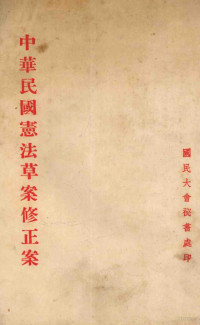 中華民國憲法草案修正案
國民大會秘書處印